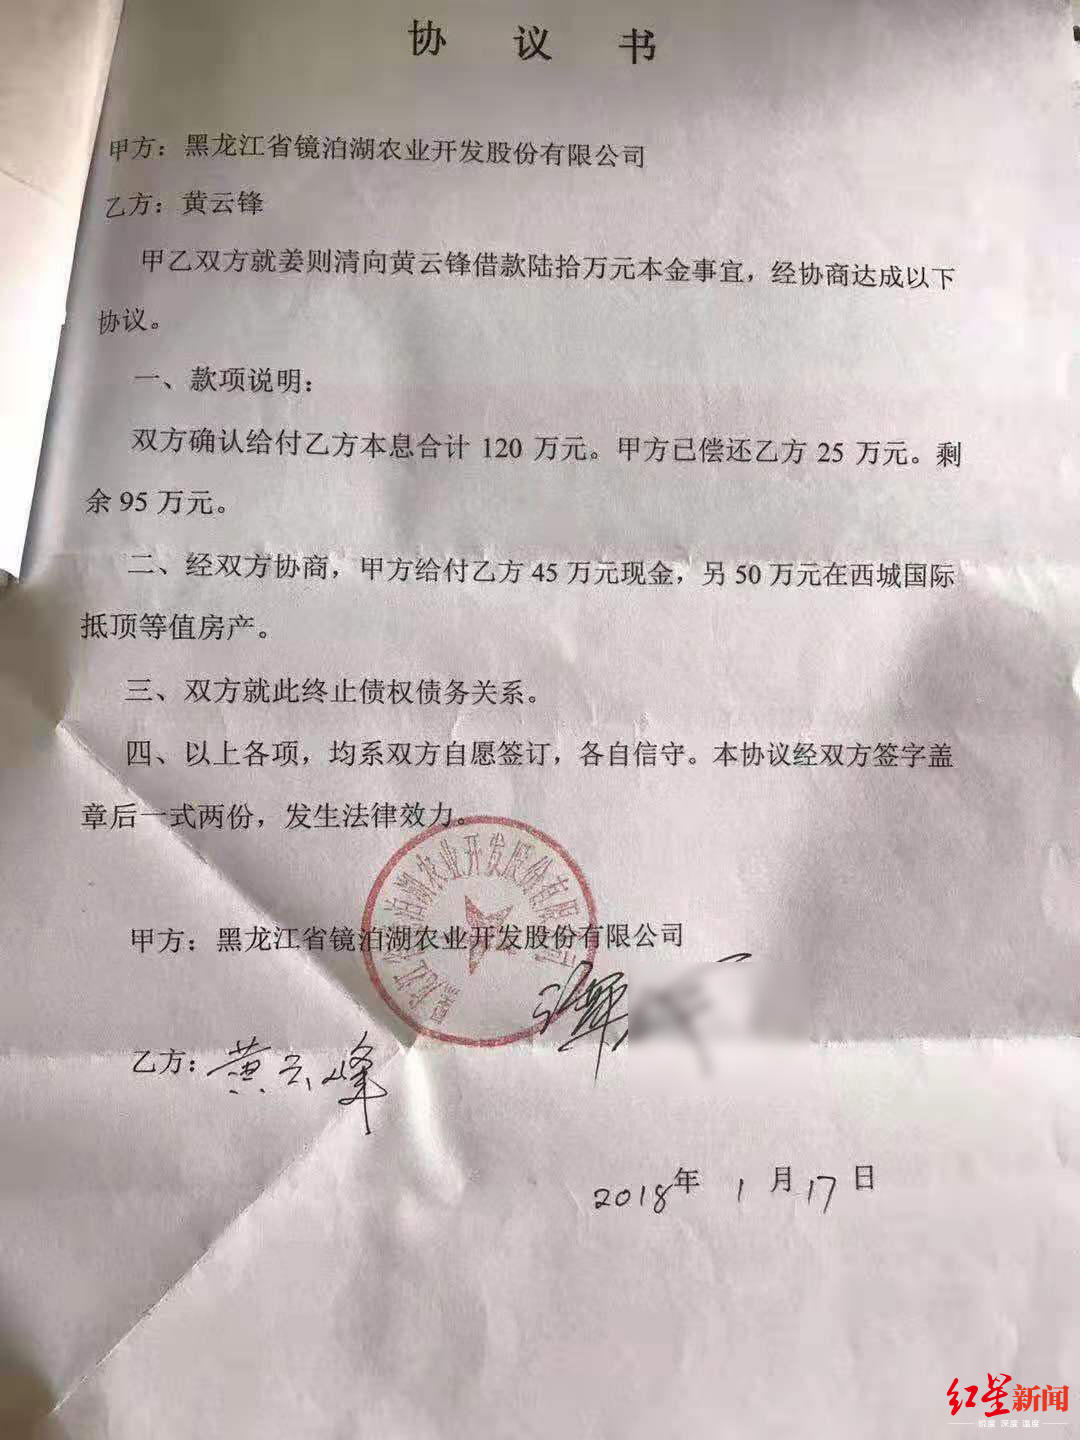 协 议 书
甲方：黑龙江省镜泊湖农业开发股份有限公司
乙方：黄云锋
甲乙双方就姜则清向黄云锋借款陆拾万元本金事宜，经协商达成以下
协议。
一、款项说明：
双方确认给付乙方本息合计 120 万元。甲方已偿还乙方 25 万元。剩
余 95 万元。
二、经双方协商，甲方给付乙方 45 万元现金，另 50 万元在西城国际
抵顶等值房产。
三、双方就此终止债权债务关系。
四、以上各项，均系双方自愿签订，各自信守。本协议经双方签字盖
章后一式两份，发生法律效力。
甲方：黑龙江省镜泊湖农业开发股份有限公司
乙方：黄云峰
2018年 1 月 17 日
红星新闻
锐度 深度 温度